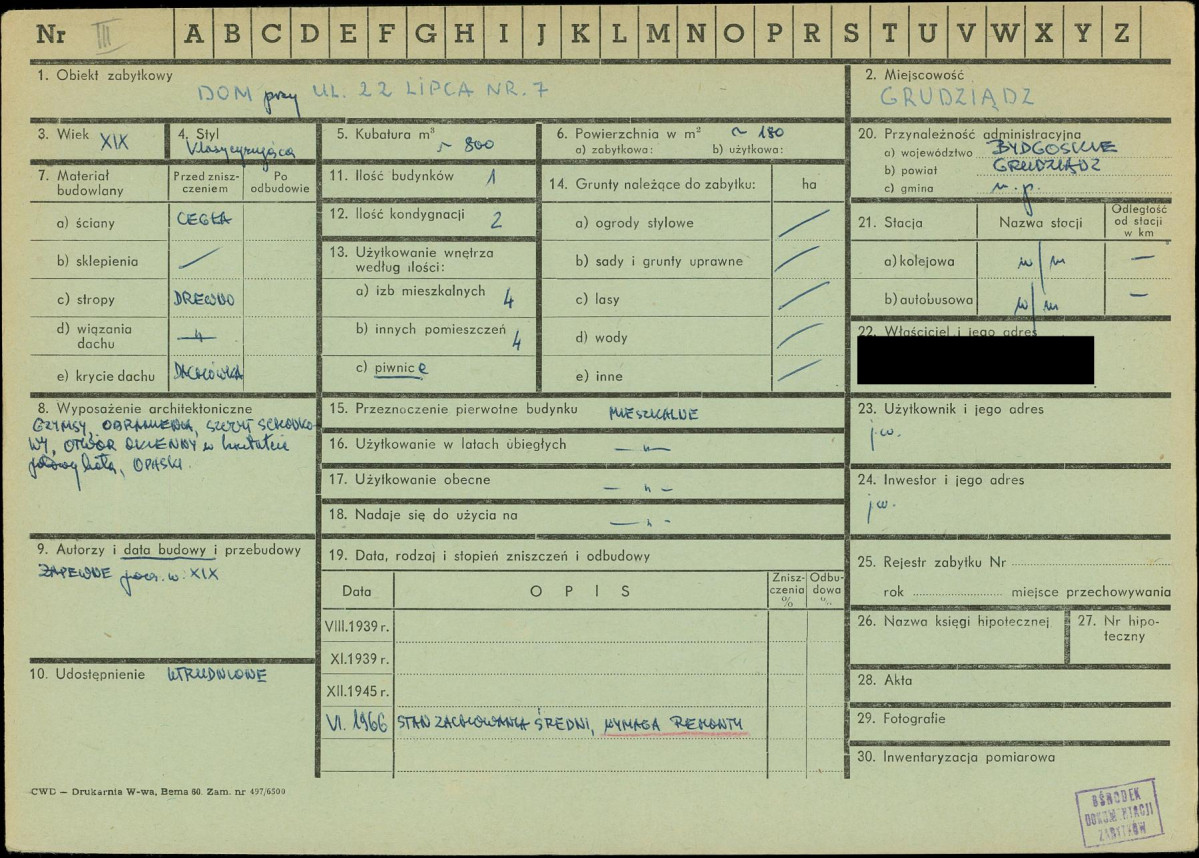 Nr III A B C D E F G H I J K L M N O P R S T U V W X Y Z
1. Obiekt zabytkowy
DOM przy UL. 22 LIPCA NR. 7
2. Miejscowość
GRUDZIĄDZ
3. Wiek XIX
4. Styl
klasycyzująca
5. Kubatura m³
~ 800
6. Powierzchnia w m² ~ 180
a) zabytkowa: b) użytkowa:
20. Przynależność administracyjna
a) województwo BYDGOSKIE
b) powiat GRUDZIĄDZ
c) gmina n. p.
7. Materiał budowlany
Przed zniszczeniem
Po odbudowie
a) ściany CEGŁA
b) sklepienia /
c) stropy DREWNO
d) wiązania dachu —"—
e) krycie dachu DACHÓWKA
11. Ilość budynków 1
12. Ilość kondygnacji 2
13. Użytkowanie wnętrza
według ilości:
a) izb mieszkalnych 4
b) innych pomieszczeń 4
c) piwnice
14. Grunty należące do zabytku: ha
a) ogrody stylowe /
b) sady i grunty uprawne /
c) lasy /
d) wody /
e) inne /
21. Stacja Nazwa stacji Odległość od stacji w km
a) kolejowa w/m —
b) autobusowa w/m —
22. Właściciel i jego adres
8. Wyposażenie architektoniczne
GZYMSY, OBRAMIENIA, SZCZYT SCHODKO-
WY, OTWÓR OKIENNY w kształcie
połowy koła, OPASKI.
15. Przeznaczenie pierwotne budynku MIESZKALNE
16. Użytkowanie w latach ubiegłych —"—
17. Użytkowanie obecne —"—
18. Nadaje się do użycia na —"—
23. Użytkownik i jego adres
j.w.
24. Inwestor i jego adres
j.w.
9. Autorzy i data budowy i przebudowy
ZAPEWNE pocz. w. XIX
19. Data, rodzaj i stopień zniszczeń i odbudowy
Data OPIS Zniszczenia % Odbudowa %
VIII.1939 r.
XI.1939 r.
XII.1945 r.
VI. 1966 STAN ZACHOWANIA ŚREDNI, WYMAGA REMONTU
25. Rejestr zabytku Nr
rok miejsce przechowywania
26. Nazwa księgi hipotecznej
27. Nr hipoteczny
10. Udostępnienie UTRUDNIONE
28. Akta
29. Fotografie
30. Inwentaryzacja pomiarowa
CWD — Drukarnia W-wa, Bema 60. Zam. nr 497/6500
OŚRODEK
DOKUMENTACJI
ZABYTKÓW